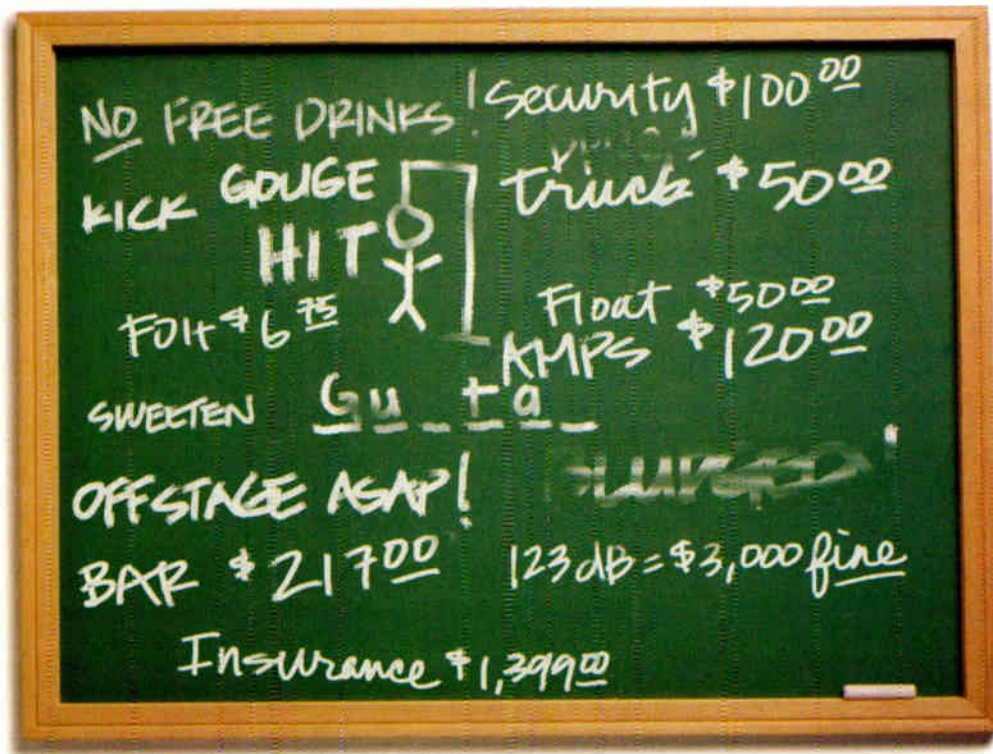 NO FREE DRINKS!
Security $100.00
KICK GOUGE
HIT
truck $50.00
FOH $6.75
Float $50.00
AMPS $120.00
SWEETEN
Gu_ta_
OFFSTAGE ASAP!
BAR $217.00
123 dB = $3,000 fine
Insurance $1,399.00